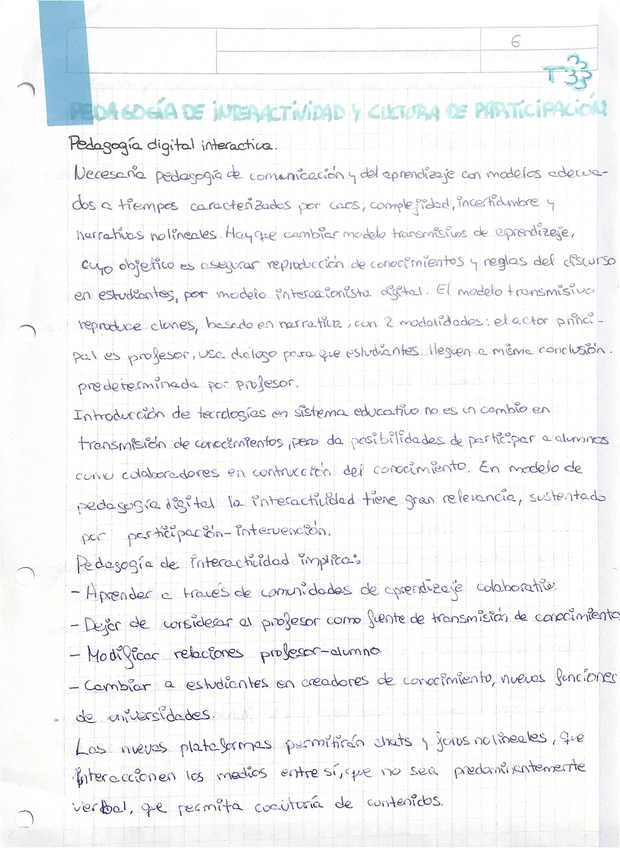 6
T 3
PEDAGOGÍA DE INTERACTIVIDAD Y CULTURA DE PARTICIPACIÓN
Pedagogía digital interactiva.
Necesaria pedagogía de comunicación y del aprendizaje con modelos adecua-
dos a tiempos caracterizados por caos, complejidad, incertidumbre y
narrativas no lineales. Hay que cambiar modelo transmisivos de aprendizaje,
cuyo objetico es asegurar reproducción de conocimientos y reglas del discurso
en estudiantes, por modelo interaccionista digital. El modelo transmisivo
reproduce clones, basado en narrativa, con 2 modalidades: el actor princi-
pal es profesor, usa diálogo para que estudiantes lleguen a misma conclusión
predeterminada por profesor.
Introducción de tecnologías en sistema educativo no es un cambio en
transmisión de conocimientos, pero da posibilidades de participar a alumnos
como colaboradores en contrucción del conocimiento. En modelo de
pedagogía digital la interactividad tiene gran relevancia, sustentado
por participación-intervención.
Pedagogía de interactividad implica:
- Aprender a través de comunidades de aprendizaje colaborativo.
- Dejar de considerar al profesor como fuente de transmisión de conocimiento
- Modificar relaciones profesor-alumno
- Cambiar a estudiantes en creadores de conocimiento, nuevas funciones
de universidades.
Las nuevas plataformas permitirán chats y foros no lineales, que
interaccionen los medios entre sí, que no sea predominantemente
verbal, que permita coautoría de contenidos.